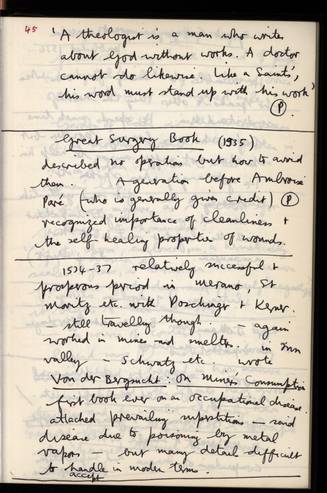 45
'A theologist is a man who writes
about God without works. A doctor
cannot do likewise. Like a Saints',
his word must stand up with his work'
P.
Great Surgery Book (1935)
described no operations but how to avoid
them. A generation before Ambroise
Paré (who is generally given credit) P
recognized importance of cleanliness +
the self-healing properties of wounds.
1534-37 relatively successful +
prosperous period in Merano, St
Moritz etc. with
— still travelling though. — again
worked in mines and smelters in Inn
valley — Schwatz etc wrote
Von der Bergsucht: On Miners Consumption
first book ever on an occupational disease.
attacked prevailing superstitions — said
disease due to poisoning by metal
vapors — but many details difficult
to handle in modern terms.
accept